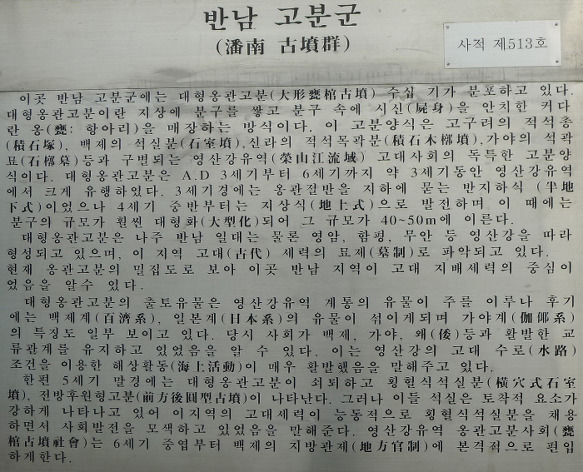 반남 고분군
(潘南 古墳群)
사적 제513호
이곳 반남 고분군에는 대형옹관고분(大形甕棺古墳) 수십 기가 분포하고 있다.
대형옹관고분이란 지상에 분구를 쌓고 분구 속에 시신(屍身)을 안치한 커다
란 옹(甕: 항아리)을 매장하는 방식이다. 이 고분양식은 고구려의 적석총
(積石塚), 백제의 석실분(石室墳),신라의 적석목곽분(積石木槨墳),가야의 석곽
묘(石槨墓)등과 구별되는 영산강유역(榮山江流域) 고대사회의 독특한 고분양
식이다. 대형옹관고분은 A.D 3세기부터 6세기까지 약 3세기동안 영산강유역
에서 크게 유행하였다. 3세기경에는 옹관절반을 지하에 묻는 반지하식 (半地
下式)이었으나 4세기 중반부터는 지상식(地上式)으로 발전하며, 이 때에는
분구의 규모가 훨씬 대형화(大型化)되어 그 규모가 40~50m에 이른다.
대형옹관고분은 나주 반남 일대는 물론 영암, 함평, 무안 등 영산강을 따라
형성되고 있으며, 이 지역 고대(古代) 세력의 묘제(墓制)로 파악되고 있다.
현재 옹관고분의 밀집도로 보아 이곳 반남 지역이 고대 지배세력의 중심이
었음을 알수 있다.
대형옹관고분의 출토유물은 영산강유역 계통의 유물이 주를 이루나 후기
에는 백제계(百濟系), 일본계(日本系)의 유물이 섞이게되며 가야계(伽倻系)
의 특징도 일부 보이고 있다. 당시 사회가 백제, 가야, 왜(倭)등과 활발한 교
류관계를 유지하고 있었음을 알 수 있다. 이는 영산강의 고대 수로(水路)
조건을 이용한 해상활동(海上活動)이 매우 활발했음을 말해주고 있다.
한편 5세기 말경에는 대형옹관고분이 쇠퇴하고 횡혈식석실분(橫穴式石室
墳), 전방후원형고분(前方後圓型古墳)이 나타난다. 그러나 이들 석실은 토착적 요소가
강하게 나타나고 있어 이지역의 고대세력이 능동적으로 횡혈식석실분을 채용
하면서 사회발전을 모색하고 있었음을 말해준다. 영산강유역 옹관고분사회(甕
棺古墳社會)는 6세기 중엽부터 백제의 지방관제(地方官制)에 본격적으로 편입
하게한다.